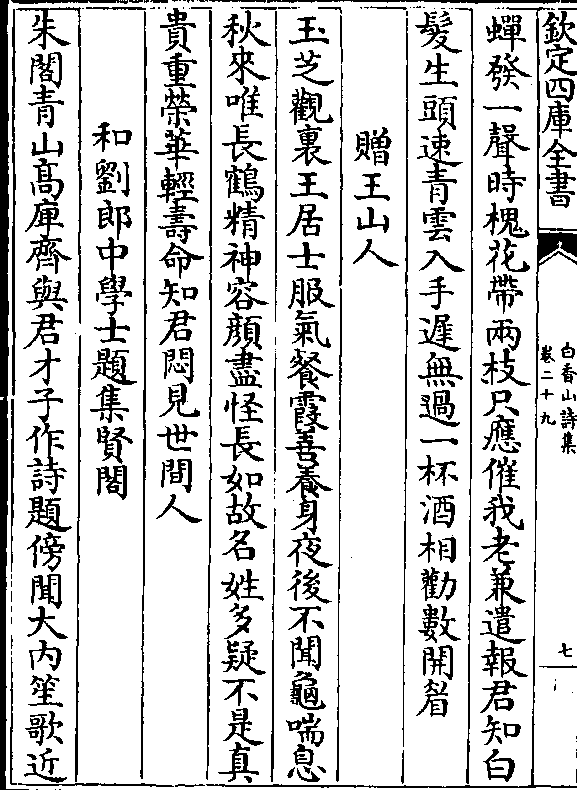 欽定四庫全書
白香山詩集
卷二十九
七
蟬發一聲時槐花帶兩枝只應催我老兼遣報君知白
髮生頭速青雲入手遲無過一杯酒相勸數開眉
贈王山人
玉芝觀裏王居士服氣餐霞善養身夜後不聞龜喘息
秋來唯長鶴精神容顔盡怪長如故名姓多疑不是真
貴重榮華輕壽命知君悶見世間人
和劉郎中學士題集賢閣
朱閣青山髙庳齊與君才子作詩題傍聞大内笙歌近